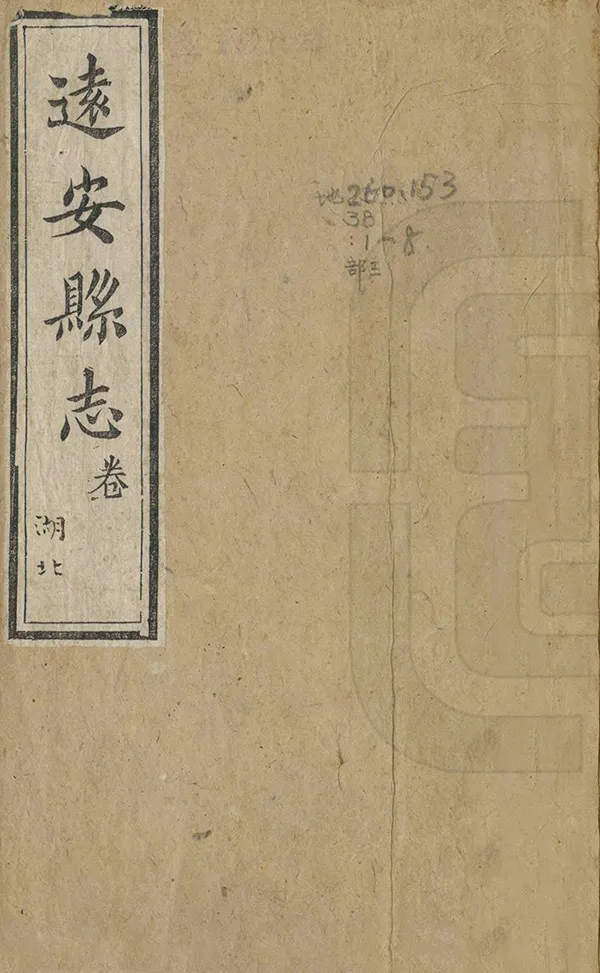 遠安縣志
卷
湖北
地260.153
38
:1-8
部三